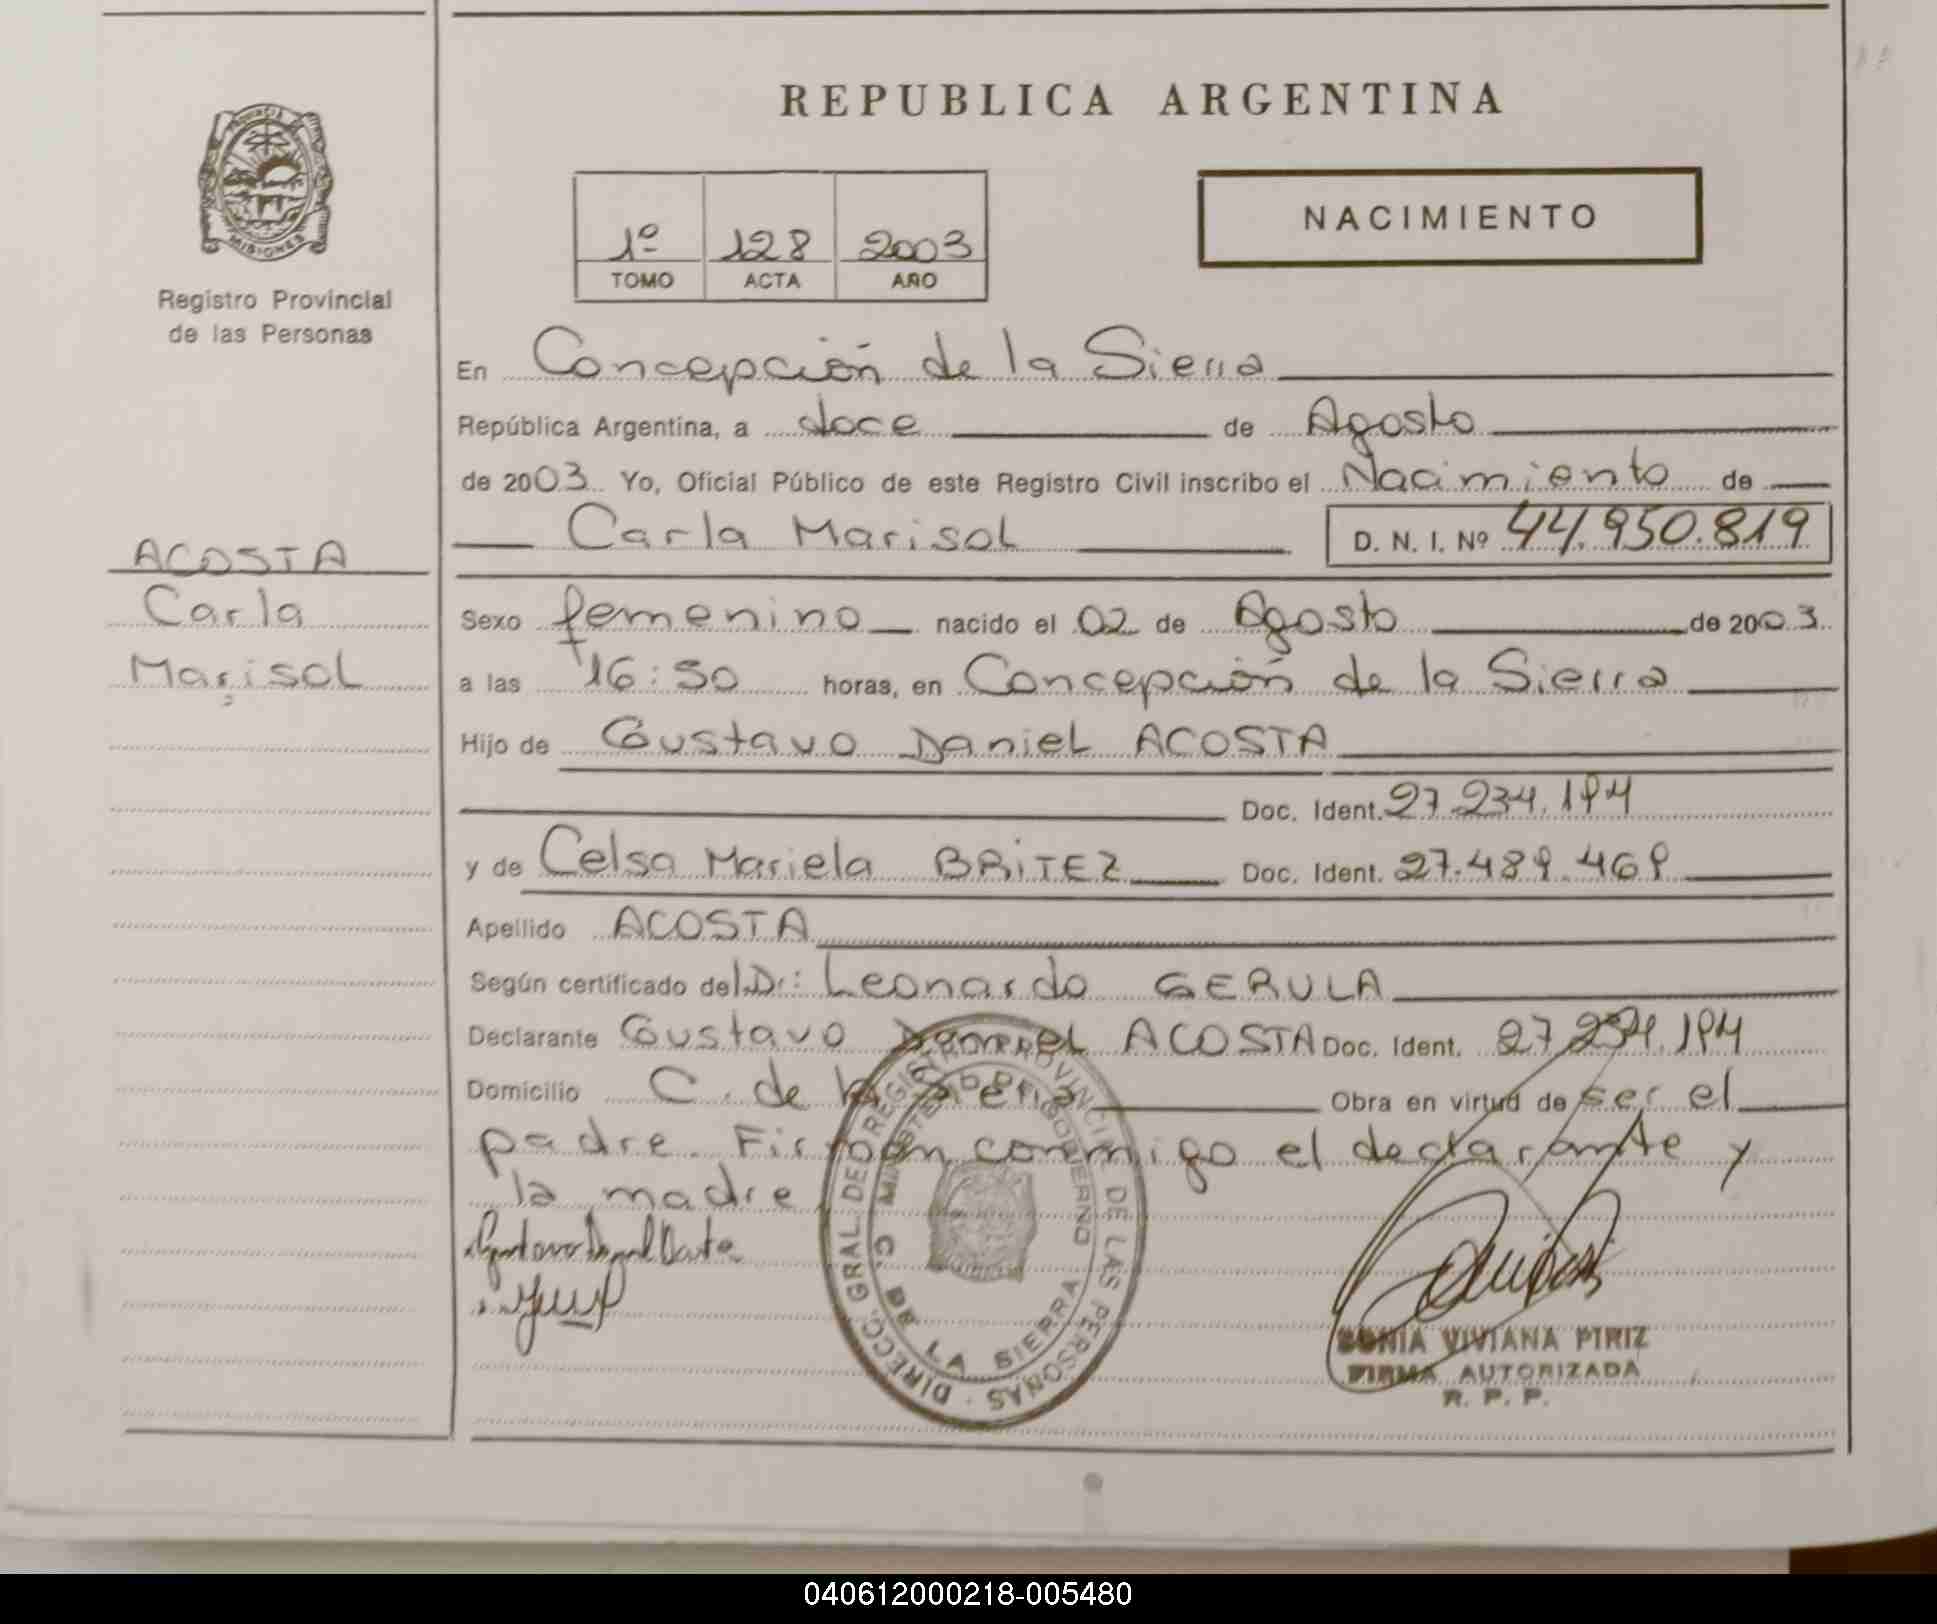 REPUBLICA ARGENTINA
PROVINCIA DE MISIONES
Registro Provincial
de las Personas
1º 128 2003
TOMO ACTA AÑO
NACIMIENTO
En Concepción de la Sierra
República Argentina, a doce de Agosto
de 2003. Yo, Oficial Público de este Registro Civil inscribo el Nacimiento de
Carla Marisol D. N. I. Nº 44.950.819
ACOSTA
Carla
Marisol
Sexo femenino nacido el 02 de Agosto de 2003.
a las 16:50 horas, en Concepción de la Sierra
Hijo de Gustavo Daniel ACOSTA
Doc. Ident. 27.234.194
y de Celsa Mariela BRITEZ Doc. Ident. 27.489.469
Apellido ACOSTA
Según certificado del Dr: Leonardo GERULA
Declarante Gustavo Daniel ACOSTA Doc. Ident. 27.234.194
Domicilio C. de la Sierra Obra en virtud de ser el
padre. Firman conmigo el declarante y
la madre
DIRECC. GRAL. DEL REGISTRO PROVINCIAL DE LAS PERSONAS
MINISTERIO DE GOBIERNO
C. DE LA SIERRA
SONIA VIVIANA PIRIZ
FIRMA AUTORIZADA
R. P. P.
040612000218-005480